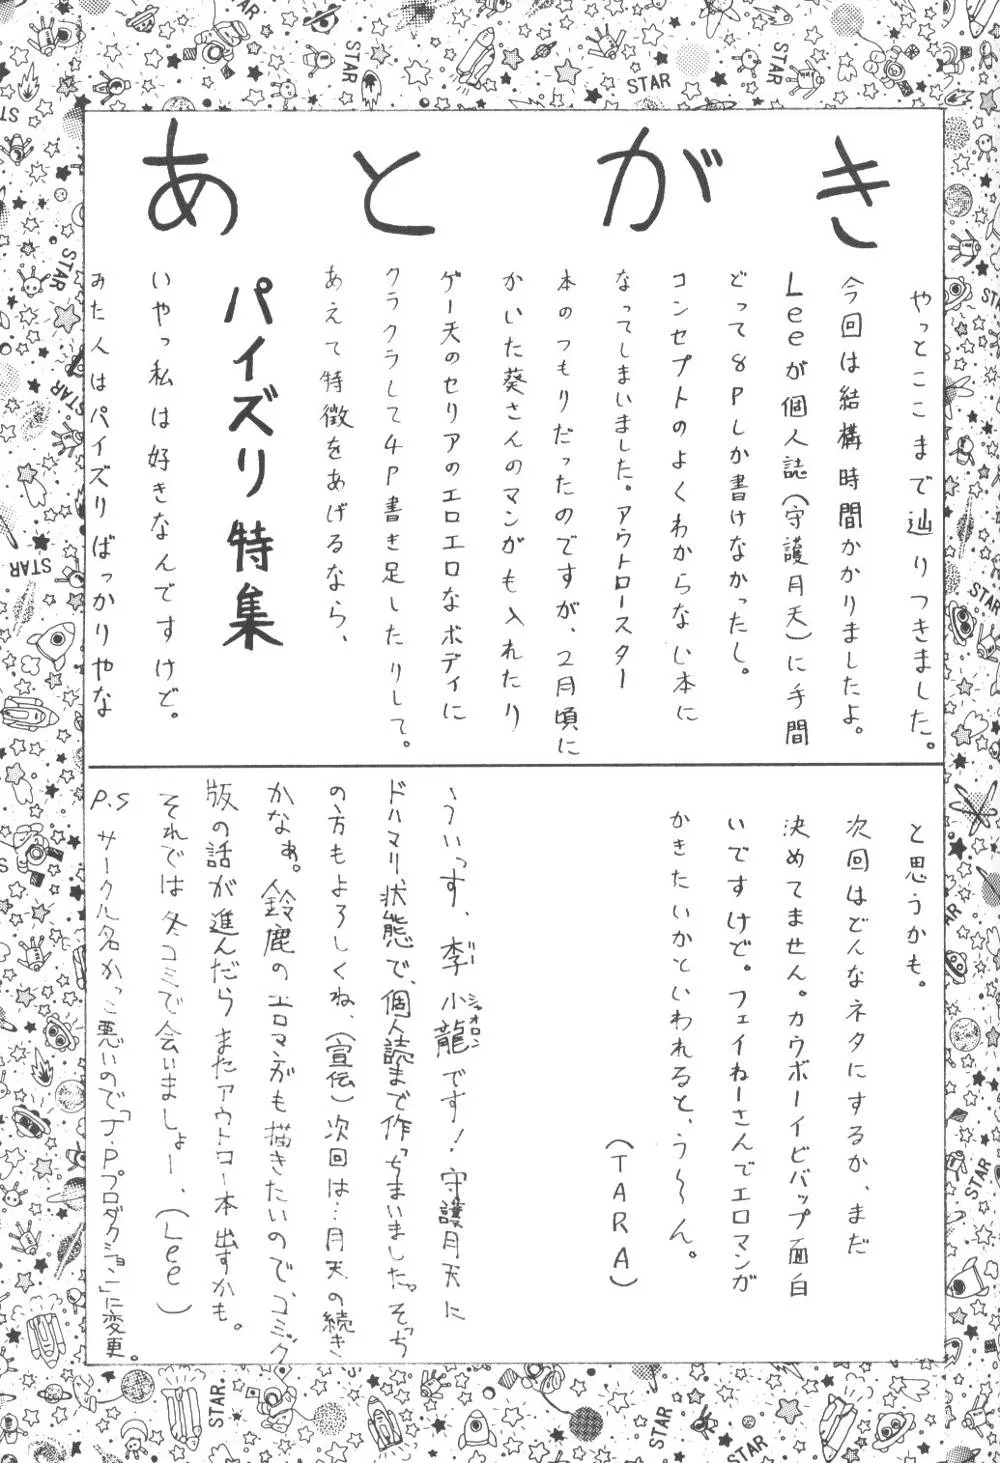 あとがき
やっとここまで辿りつきました。
今回は結構時間かかりましたよ。
Leeが個人誌(守護月天)に手間
どって8Pしか書けなかったし。
コンセプトのよくわからない本に
なってしまいました。アウトロースター
本のつもりだったのですが、2月頃に
かいた葵さんのマンガも入れたり
ゲー天のセリアのエロエロなボディに
クラクラして4P書き足したりして。
あえて特徴をあげるなら、
パイズリ特集
いやっ私は好きなんですけど。
みた人はパイズリばっかりやな
と思うかも。
次回はどんなネタにするか、まだ
決めてません。カウボーイビバップ面白
いですけど。フェイねーさんでエロマンガ
かきたいかといわれると、う〜ん。
(TARA)
ういっす、李小龍です!守護月天に
リー シャオロン
ドハマリ状態で、個人読まで作っちまいました。そっち
の方もよろしくね、(宣伝)次回は…月天の続き
かなぁ。鈴鹿のエロマンガも描きたいので、コミック
版の話が進んだらまたアウトロー本出すかも。
それでは冬コミで会いましょー、(Lee)
P.S サークル名かっこ悪いので「J.Pプロダクション」に変更。
STAR
STAR
STAR
STAR
STAR
STAR
STAR
STAR
STAR
STAR
STAR
STAR
STAR